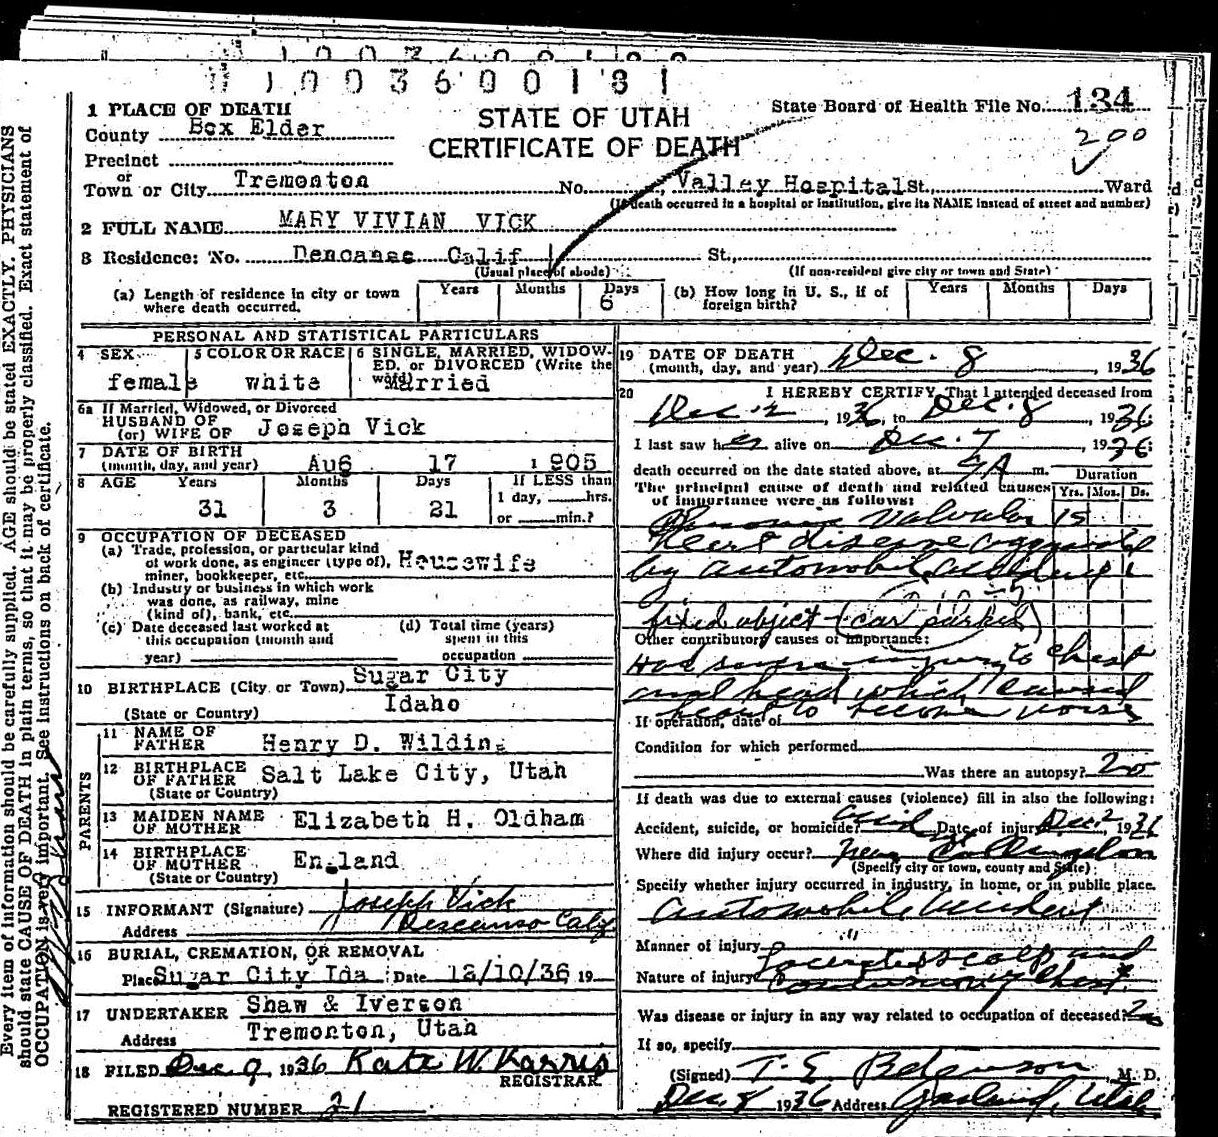 1003600131
1 PLACE OF DEATH
County Box Elder
Precinct
or
Town or City Tremonton No. Valley Hospital St., Ward
(If death occurred in a hospital or institution, give its NAME instead of street and number)
STATE OF UTAH
CERTIFICATE OF DEATH
State Board of Health File No. 134
200
2 FULL NAME MARY VIVIAN VICK
3 Residence: No. Dencanse Calif St.,
(Usual place of abode) (If non-resident give city or town and State)
(a) Length of residence in city or town where death occurred. Years Months Days 6
(b) How long in U. S., if of foreign birth? Years Months Days
PERSONAL AND STATISTICAL PARTICULARS
4 SEX female
5 COLOR OR RACE white
6 SINGLE, MARRIED, WIDOWED, OR DIVORCED (Write the word) Married
6a If Married, Widowed, or Divorced
HUSBAND OF
(or) WIFE OF Joseph Vick
7 DATE OF BIRTH
(month, day, and year) Aug 17 1905
8 AGE Years 31 Months 3 Days 21 If LESS than 1 day, hrs. or min.?
9 OCCUPATION OF DECEASED
(a) Trade, profession, or particular kind of work done, as engineer (type of), miner, bookkeeper, etc. Housewife
(b) Industry or business in which work was done, as railway, mine (kind of), bank, etc.
(c) Date deceased last worked at this occupation (month and year)
(d) Total time (years) spent in this occupation
10 BIRTHPLACE (City or Town) Sugar City
(State or Country) Idaho
PARENTS
11 NAME OF FATHER Henry D. Wilding
12 BIRTHPLACE OF FATHER Salt Lake City, Utah
(State or Country)
13 MAIDEN NAME OF MOTHER Elizabeth H. Oldham
14 BIRTHPLACE OF MOTHER England
(State or Country)
15 INFORMANT (Signature) Joseph Vick
Address Descanso Calif
16 BURIAL, CREMATION, OR REMOVAL
Place Sugar City Ida Date 12/10/36 19
17 UNDERTAKER Shaw & Iverson
Address Tremonton, Utah
18 FILED Dec 9 1936 Kate W. Harris
REGISTRAR
REGISTERED NUMBER 21
19 DATE OF DEATH
(month, day, and year) Dec. 8, 1936
20 I HEREBY CERTIFY, That I attended deceased from
Dec. 2, 1936, to Dec. 8, 1936;
I last saw her alive on Dec. 7, 1936;
death occurred on the date stated above, at 9 A m.
The principal cause of death and related causes of importance were as follows:
Duration
Yrs. Mos. Ds.
Chronic Valvular 15
heart disease
by automobile accident
fixed object (car parked)
Other contributory causes of importance:
Had severe injury to chest
and head which caused
heart to become worse
If operation, date of
Condition for which performed
Was there an autopsy? no
If death was due to external causes (violence) fill in also the following:
Accident, suicide, or homicide? accident Date of injury Dec. 2, 1936
Where did injury occur? Near
(Specify city or town, county and State)
Specify whether injury occurred in industry, in home, or in public place.
Automobile Accident
Manner of injury "
Nature of injury Lacerated scalp and
contusion of chest
Was disease or injury in any way related to occupation of deceased? no
If so, specify
(Signed) T. E. M. D.
Dec. 8 1936 Address Garland, Utah
Every item of information should be carefully supplied. AGE should be stated EXACTLY. PHYSICIANS
should state CAUSE OF DEATH in plain terms, so that it may be properly classified. Exact statement of
OCCUPATION is very important. See instructions on back of certificate.